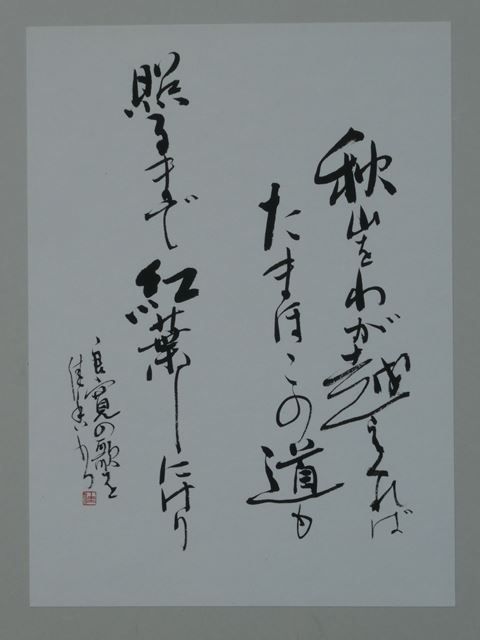 秋山をわが越えくれば
たまほこの道も
照るまで紅葉しにけり
良寛の歌を
佳